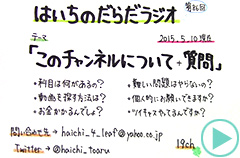 はいちのだらだラジオ 第86回
テーマ 2015.5.10現在
「このチャンネルについて+質問」
・科目は何があるの? ・難しい問題はやらないの?
・動画を探す方法は? ・個人的にお願いできますか?
・お金かかるんでしょ? ・ツイキャスやってるんですか?
問い合わせ先→haichi_4_leaf@yahoo.co.jp
Twitter→@haichi_toaru
19ch